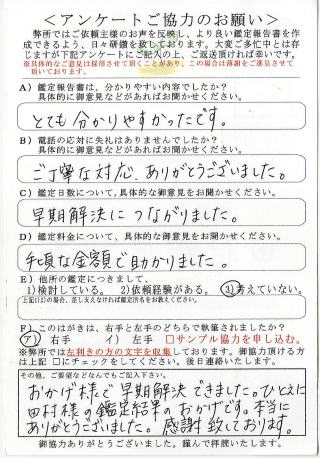 ＜アンケートご協力のお願い＞
弊所ではご依頼主様のお声を反映し、より良い鑑定報告書を作
成できるよう、日々研鑽を致しております。大変ご多忙中とは存
じますが下記アンケートにご記入の上、ご返送頂ければ幸いです。
※具体的なご意見は採用させて頂くことがあり、この場合は薄謝をご進呈させて
頂いております。
A）鑑定報告書は、分かりやすい内容でしたか？
具体的に御意見などがあればお聞かせください。
とても分かりやすかったです。
B）電話の応対に失礼はありませんでしたか？
具体的に御意見などがあればお聞かせください。
ご丁寧な対応、ありがとうございました。
C）鑑定日数について，具体的な御意見をお聞かせください。
早期解決につながりました。
D）鑑定料金について，具体的な御意見をお聞かせください。
手頃な金額で助かりました。
E）他所の鑑定につきまして、
1)検討している。 2)依頼経験がある。 3)考えていない。
上記(2)の場合、差し支えなければ鑑定所名をお教えください。
F）このはがきは、右手と左手のどちらで執筆されましたか？
ア）右手 イ）左手 □サンプル協力を申し込む。
※弊所では左利きの方の文字を収集しております。御協力頂ける方
は上記 □にチェックをしてください。後日連絡いたします。
その他、ご要望などなんでもご記入下さい。
おかげ様で早期解決できました。ひとえに
田村様の鑑定結果のおかげです。本当に
ありがとうございました。感謝致しております。
御協力ありがとうございました。謹んで拝読いたします。